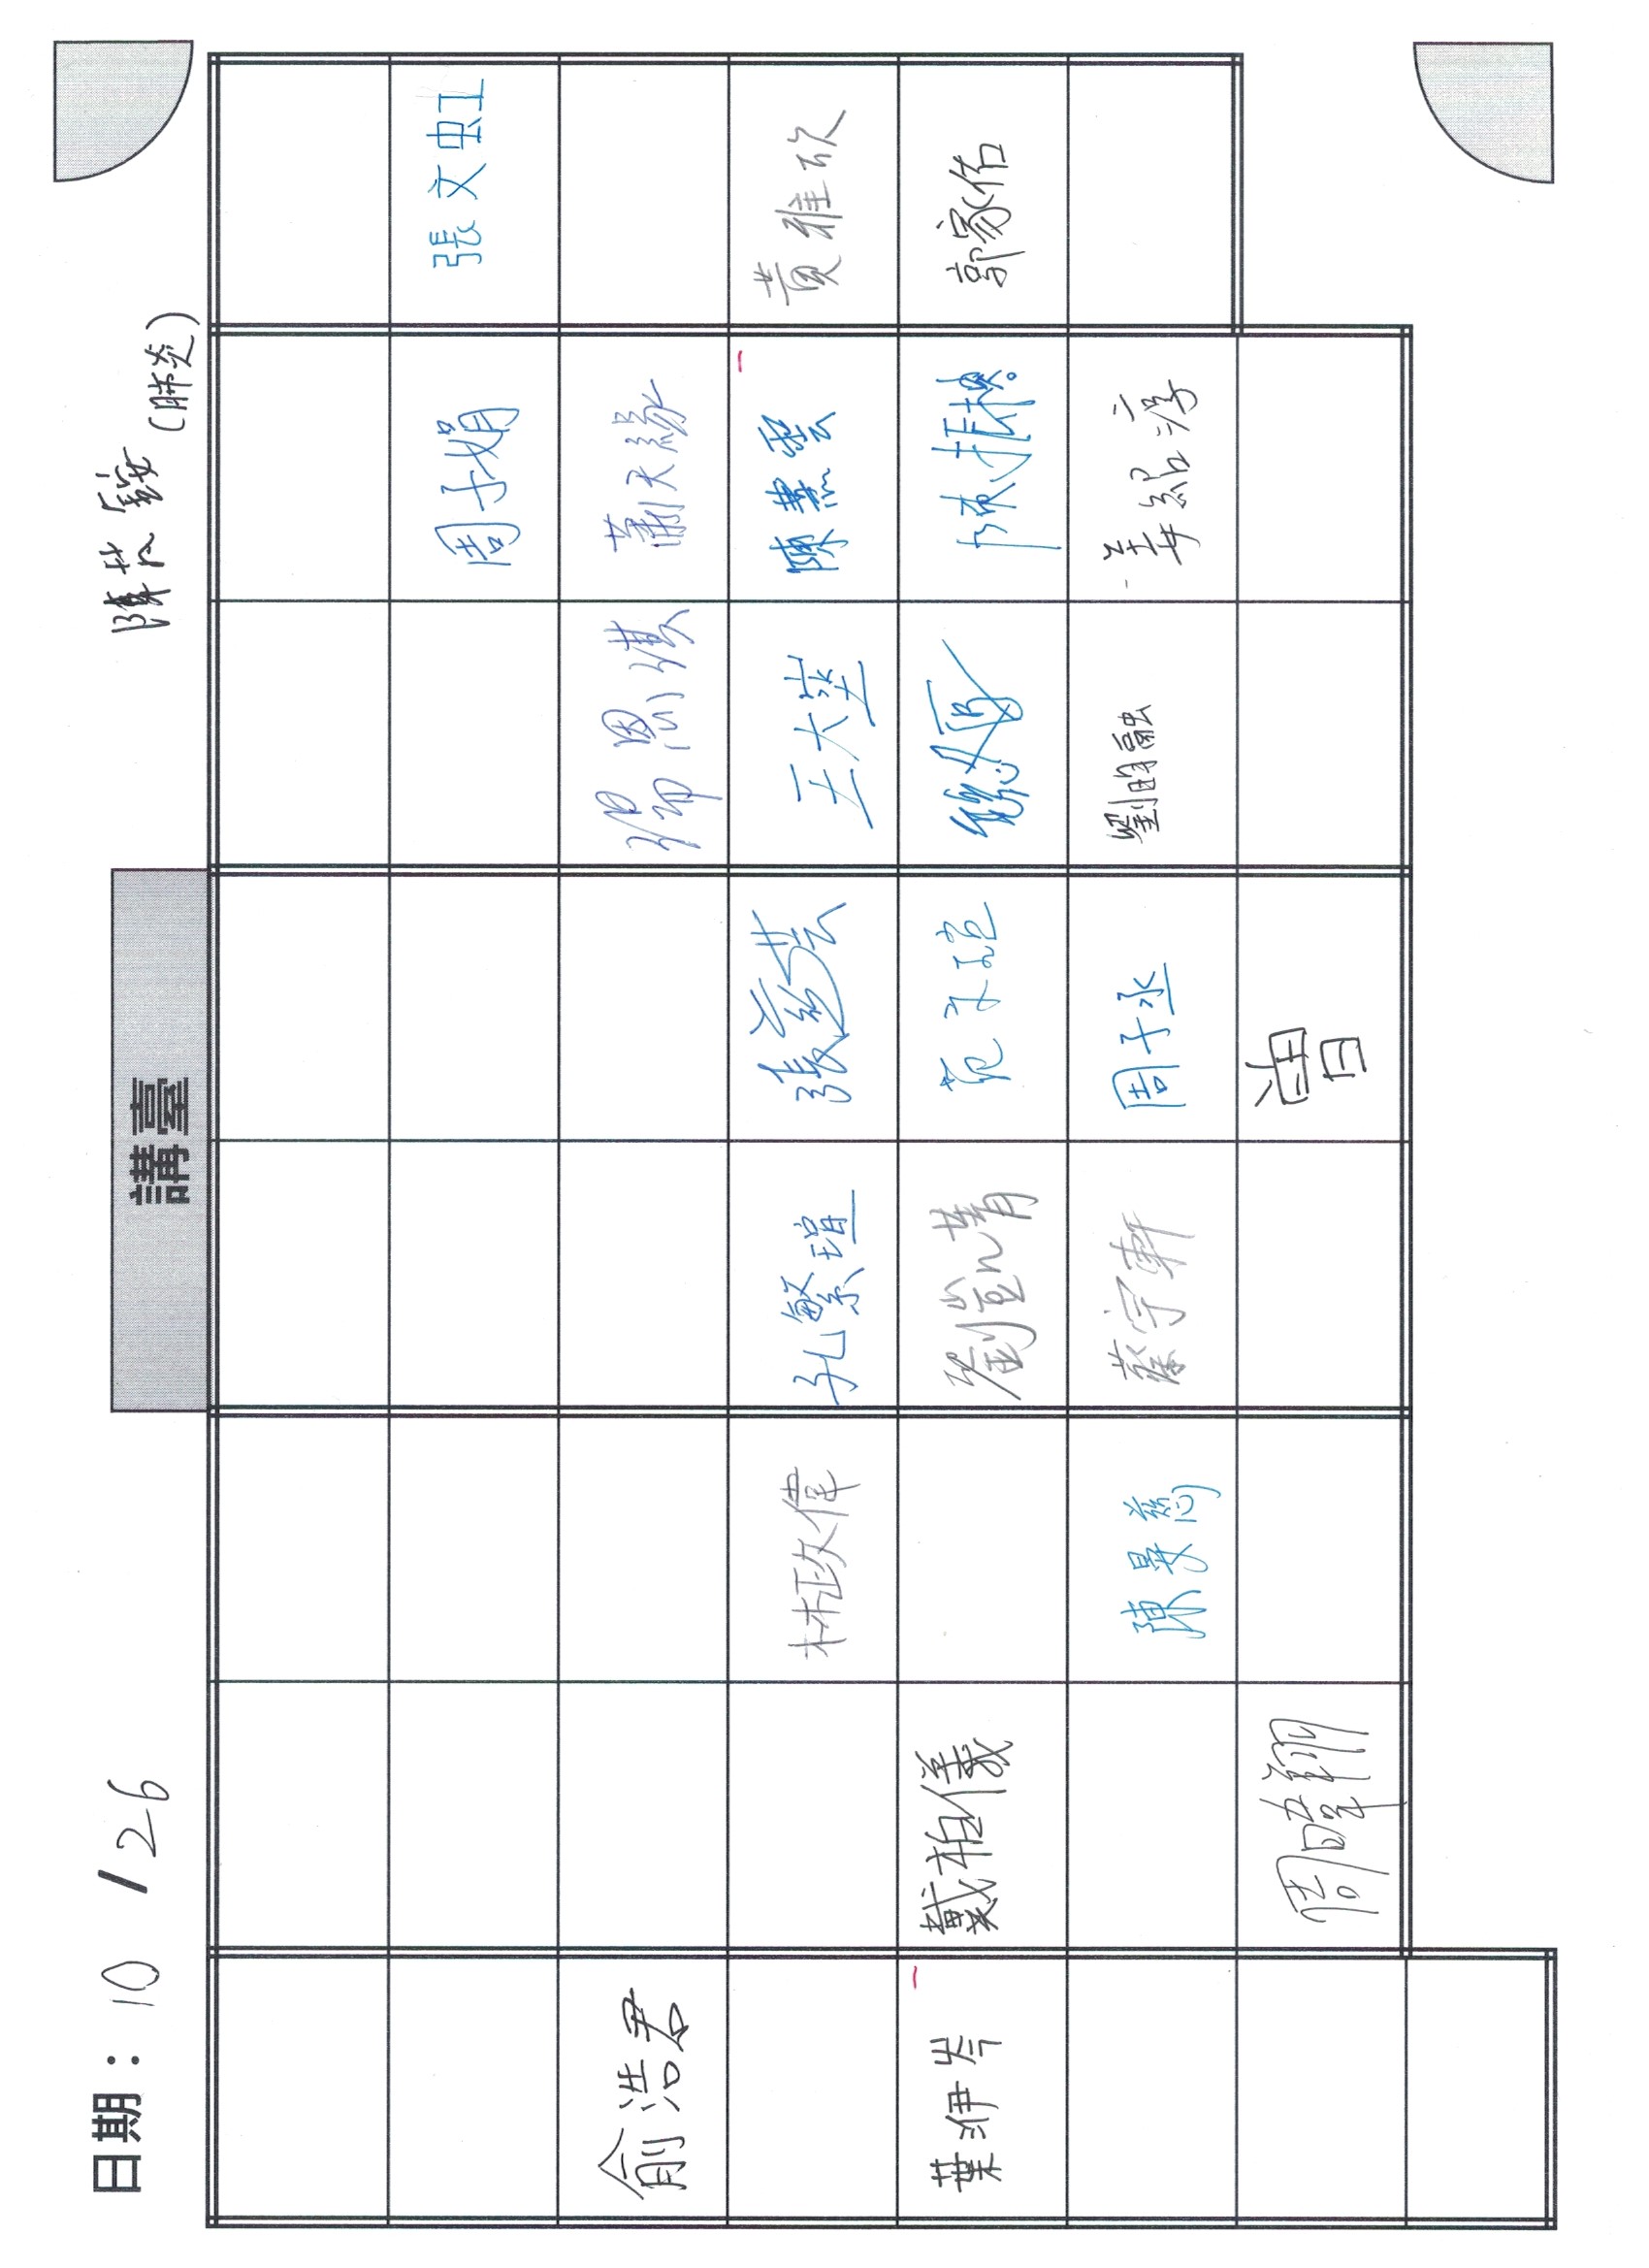 日期： 10 / 26
講臺
陳 (肺炎)
周子娟 張文虹
俞浩君 楊恩淇 蕭天緣
林政偉 孔繁瑄 張慈芸 王大 陳慧雲 黃雅欣
葉洢岑 戴柏儀 劉凱菁 范文瑄 陳振 郭家佑
陳晏慈 蔡宇軒 周子丞 劉明融 姜紹淳
周暐翔 曾